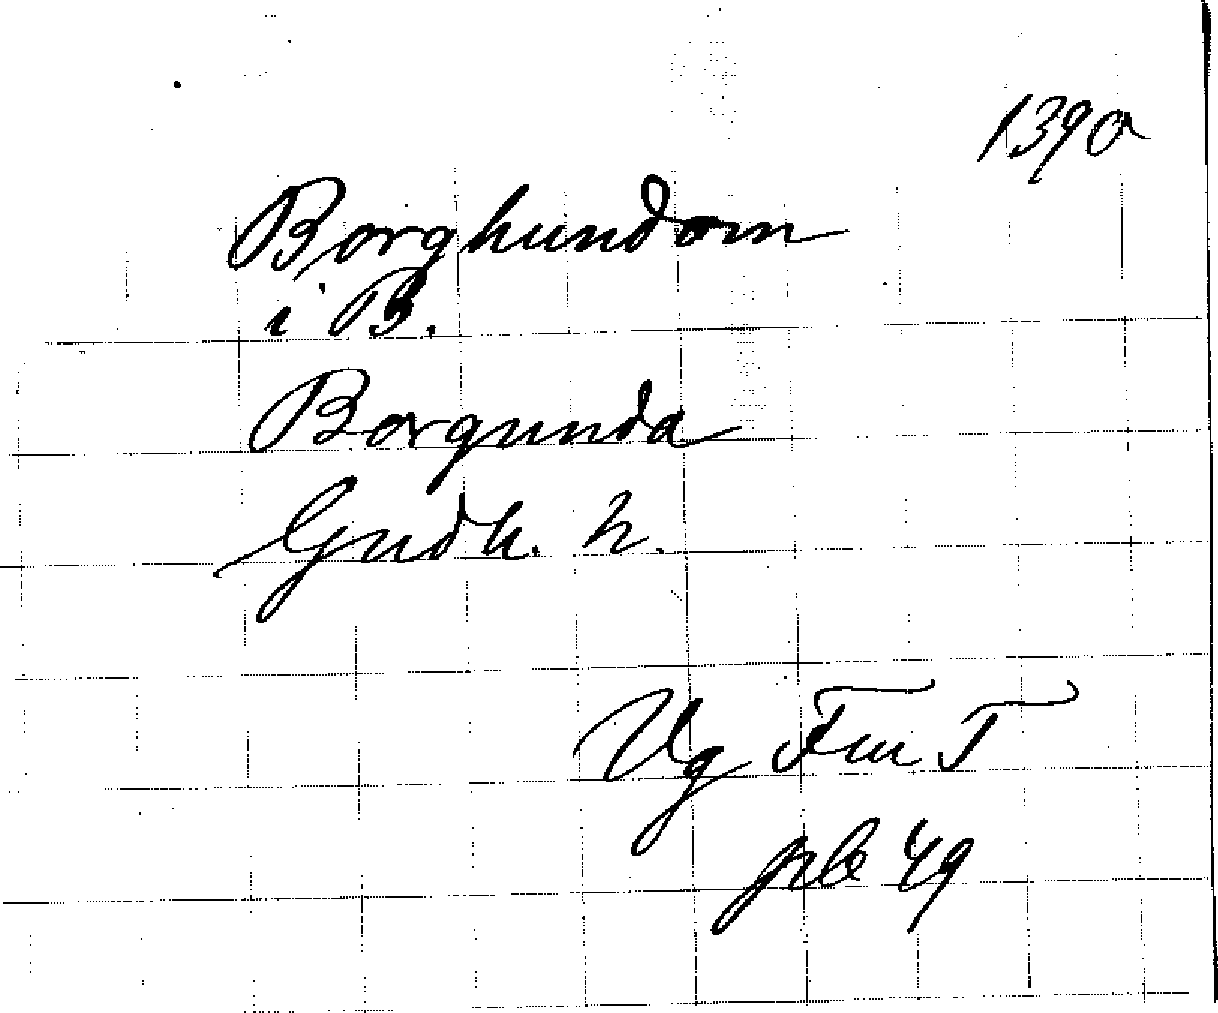 1390
Borghundom
i B.
Borgunda
Gudh. h.
Vg Fm T
prb 49